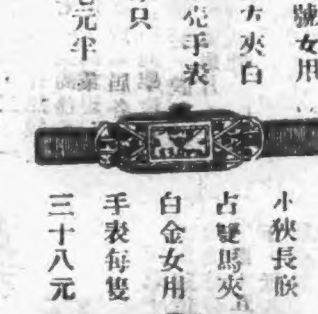 號女用
夾白
手表
只
元半
小狹長嵌
占雙馬夾
白金女用
手表每隻
三十八元